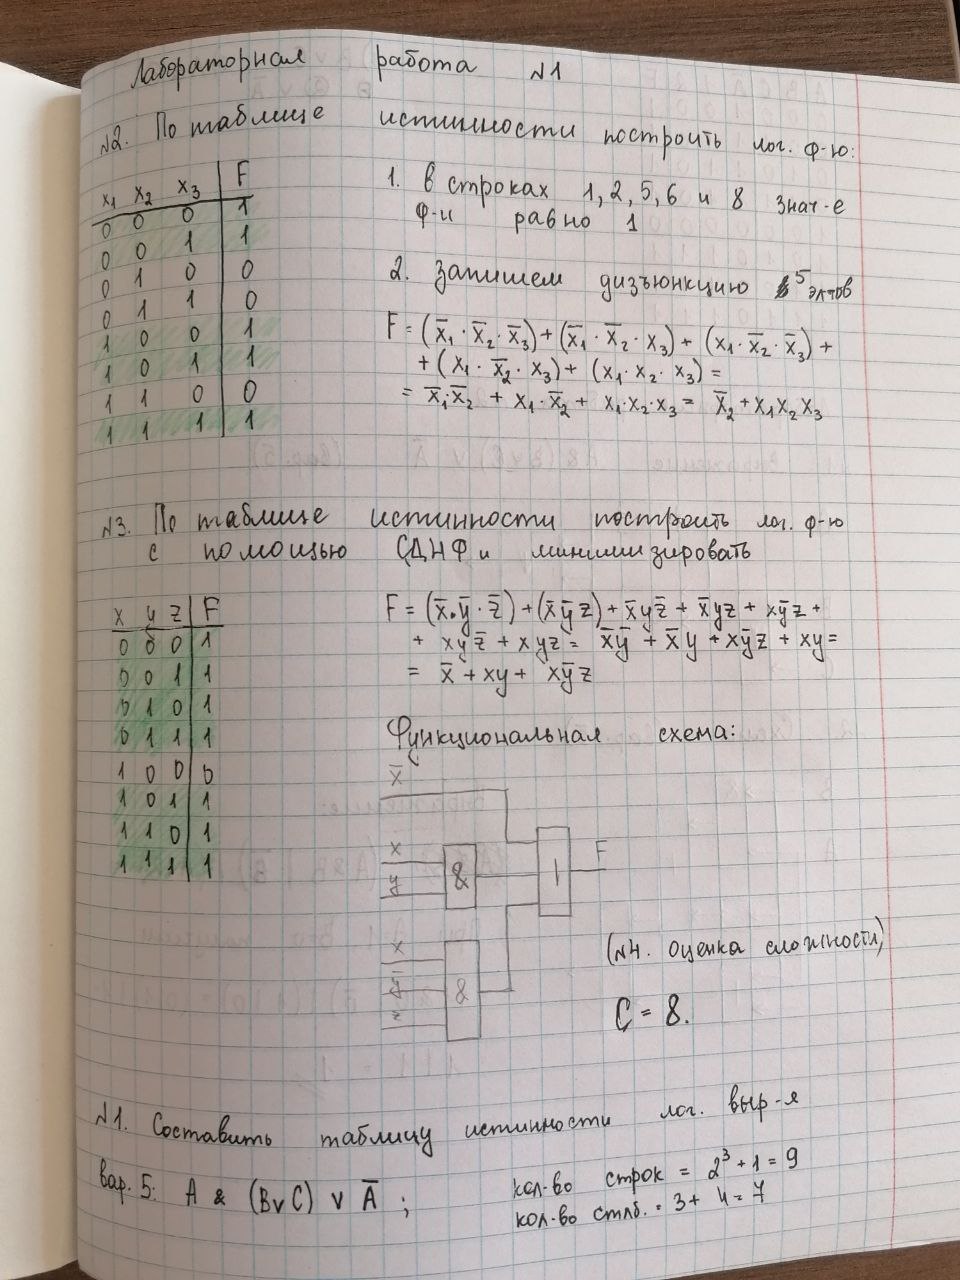 Лабораторная работа №1
№2. По таблице истинности построить лог. ф-ю:
x₁ x₂ x₃ F
0 0 0 1
0 0 1 1
0 1 0 0
0 1 1 0
1 0 0 1
1 0 1 1
1 1 0 0
1 1 1 1
1. в строках 1, 2, 5, 6 и 8 знач-е
ф-и равно 1
2. Запишем дизъюнкцию 5 эл-тов
F = (x̅₁ · x̅₂ · x̅₃) + (x̅₁ · x̅₂ · x₃) + (x₁ · x̅₂ · x̅₃) +
+ (x₁ · x̅₂ · x₃) + (x₁ · x₂ · x₃) =
= x̅₁·x̅₂ + x₁·x̅₂ + x₁·x₂·x₃ = x̅₂ + x₁x₂x₃
№3. По таблице истинности построить лог. ф-ю
с помощью СДНФ и минимизировать
x y z F
0 0 0 1
0 0 1 1
0 1 0 1
0 1 1 1
1 0 0 0
1 0 1 1
1 1 0 1
1 1 1 1
F = (x̅·y̅·z̅) + (x̅y̅z) + x̅yz̅ + x̅yz + xy̅z +
+ xyz̅ + xyz = x̅y̅ + x̅y + xy̅z + xy =
= x̅ + xy + xy̅z
Функциональная схема:
x̅
x
y
&
x
y̅
z
&
1
F
(№4. оценка сложности)
C = 8.
№1. Составить таблицу истинности лог. выр-я
вар. 5: A & (B∨C) ∨ A̅ ;
кол-во строк = 2³ + 1 = 9
кол-во стлб. = 3 + 4 = 7